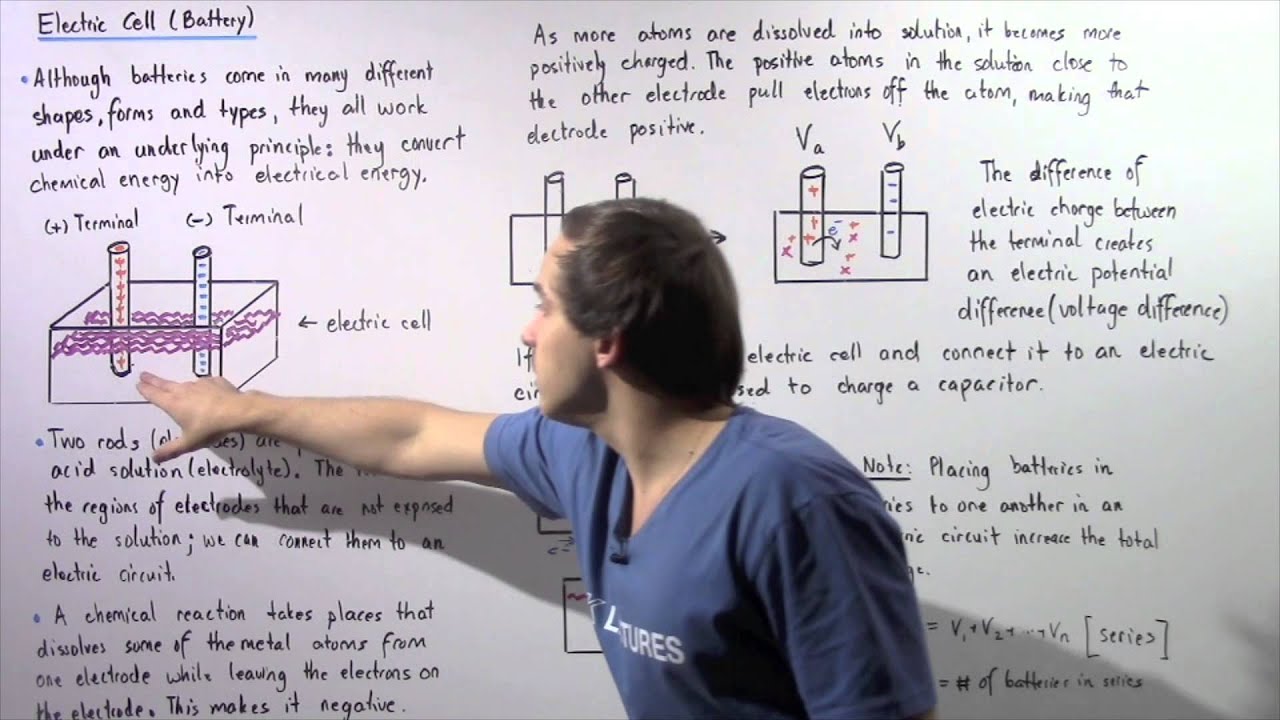 Electric Cell (Battery)
• Although batteries come in many different
shapes, forms and types, they all work
under an underlying principle: they convert
chemical energy into electrical energy.
(+) Terminal (-) Terminal
← electric cell
• Two rods are
acid solution (electrolyte). The
the regions of electrodes that are not exposed
to the solution; we can connect them to an
electric circuit.
• A chemical reaction takes places that
dissolves some of the metal atoms from
one electrode while leaving the electrons on
the electrode. This makes it negative.
As more atoms are dissolved into solution, it becomes more
positively charged. The positive atoms in the solution close to
the other electrode pull electrons off the atom, making that
electrode positive.
Va Vb
e-
The difference of
electric charge between
the terminal creates
an electric potential
difference (voltage difference)
If electric cell and connect it to an electric
to charge a capacitor.
e-
Note: Placing batteries in
to one another in an
circuit increase the total
= V1+V2+...+Vn [series]
= # of batteries in series
TURES